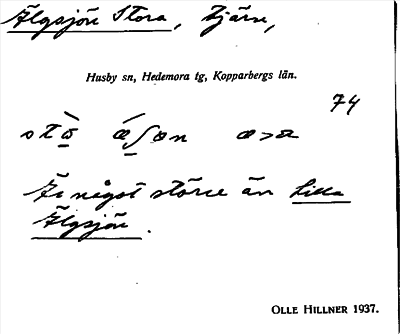 Älgsjön Stora, tjärn,
Husby sn, Hedemora tg, Kopparbergs län.
74
Är något större än Lilla
Älgsjön.
OLLE HILLNER 1937.